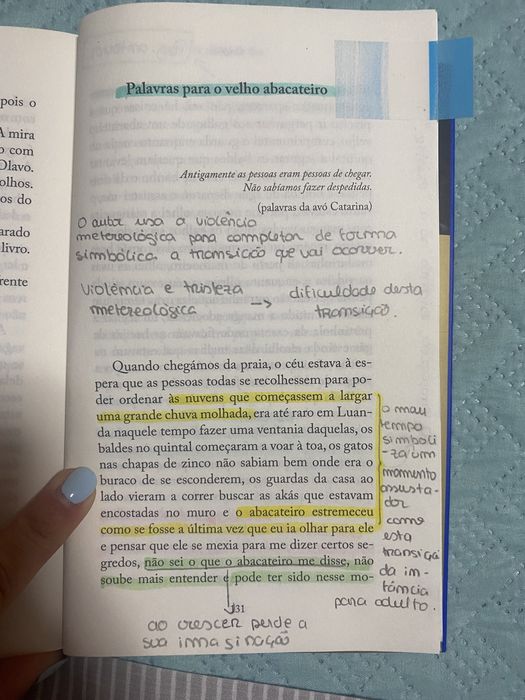 pois o
A mira
o com
Olavo.
olhos.
os do
arado
livro.
rente
Palavras para o velho abacateiro
Antigamente as pessoas eram pessoas de chegar.
Não sabíamos fazer despedidas.
(palavras da avó Catarina)
O autor usa a violência
metereológica para completar de forma
simbólica, a transição que vai ocorrer.
violência e tristeza
metereológica → dificuldade desta
transição.
Quando chegámos da praia, o céu estava à es-
pera que as pessoas todas se recolhessem para po-
der ordenar às nuvens que começassem a largar
uma grande chuva molhada, era até raro em Luan-
da naquele tempo fazer uma ventania daquelas, os
baldes no quintal começaram a voar à toa, os gatos
nas chapas de zinco não sabiam bem onde era o
buraco de se esconderem, os guardas da casa ao
lado vieram a correr buscar as akás que estavam
encostadas no muro e o abacateiro estremeceu
como se fosse a última vez que eu ia olhar para ele
e pensar que ele se mexia para me dizer certos se-
gredos, não sei o que o abacateiro me disse, não
soube mais entender e pode ter sido nesse mo-
o mau
tempo
simboli
-za um
momento
assusta-
dor
como
esta
transiçã
da in-
fância
para adulto.
131
ao crescer perde a
sua imaginação